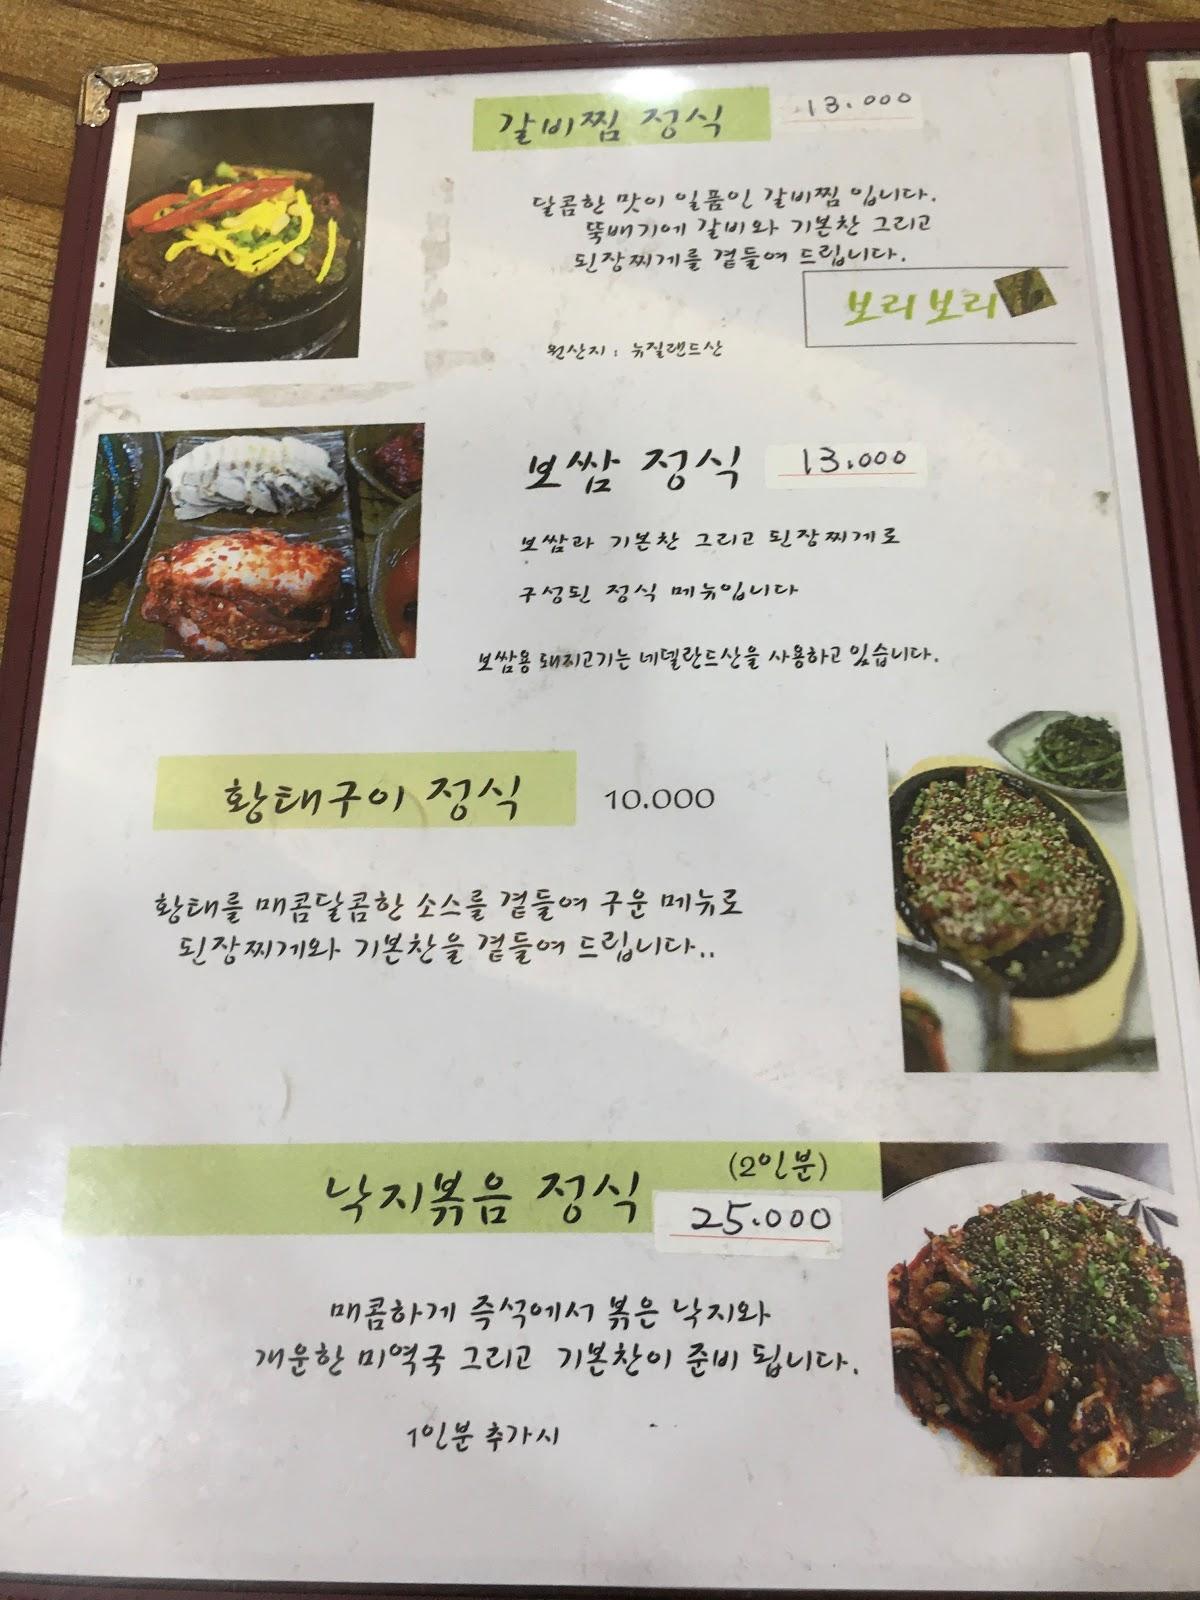 갈비찜 정식 13.000
달콤한 맛이 일품인 갈비찜 입니다.
뚝배기에 갈비와 기본찬 그리고
된장찌게를 곁들여 드립니다.
보리보리
원산지 : 뉴질랜드산
보쌈 정식 13.000
보쌈과 기본찬 그리고 된장찌게로
구성된 정식 메뉴입니다
보쌈용 돼지고기는 네델란드산을 사용하고 있습니다.
황태구이 정식 10.000
황태를 매콤달콤한 소스를 곁들여 구운 메뉴로
된장찌게와 기본찬을 곁들여 드립니다..
(2인분)
낙지볶음 정식 25.000
매콤하게 즉석에서 볶은 낙지와
개운한 미역국 그리고 기본찬이 준비 됩니다.
1인분 추가시